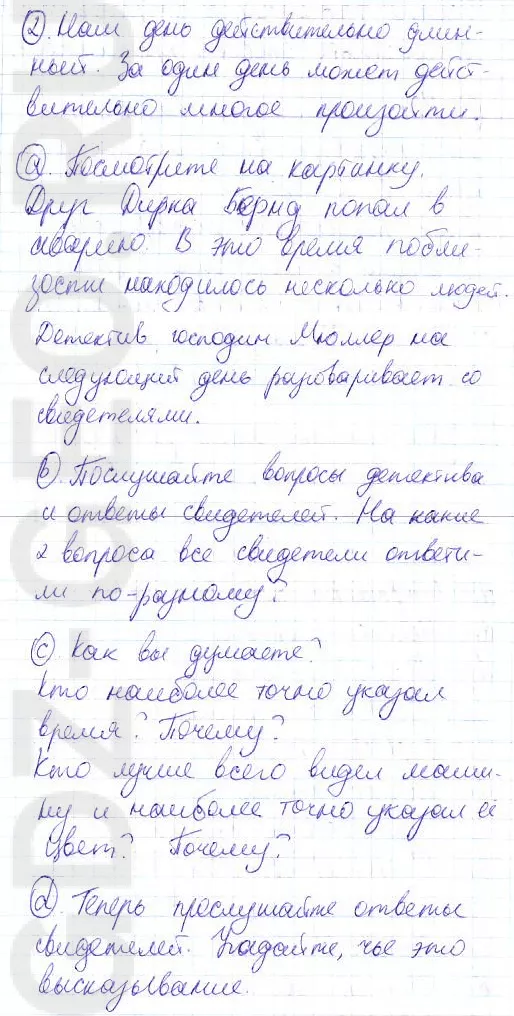 2. Наш день действительно длин-
ный. За один день может дейст-
вительно многое произойти.
a. Посмотрите на картинку.
Друг Дирка Бернд попал в
аварию. В это время побли-
зости находилось несколько людей.
Детектив господин Мюллер на
следующий день разговаривает со
свидетелями.
b. Послушайте вопросы детектива
и ответы свидетелей. На какие
2 вопроса все свидетели ответи-
ли по-разному?
c. Как вы думаете?
Кто наиболее точно указал
время? Почему?
Кто лучше всего видел маши-
ну и наиболее точно указал её
цвет? Почему?
d. Теперь прослушайте ответы
свидетелей. Угадайте, чье это
высказывание.
GDZ-GEO.RU